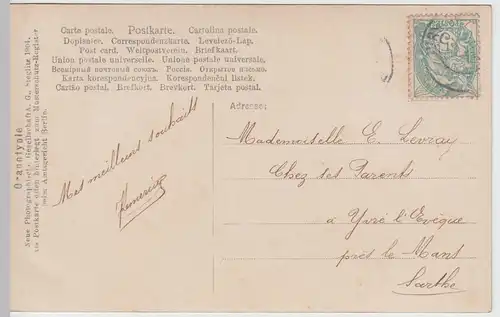 Carte postale. Postkarte. Cartolina postale.
Dopisnice. Correspondenzkarte. Levelező-Lap.
Post card. Weltpostverein. Briefkaart.
Union postale universelle. Unione postale universale.
Всемірный почтовый союзъ. Россія. Открытое письмо.
Karta korespondencyjna. Korespondenční lístek.
Cartão postal. Brefkort. Brevkort. Tarjeta postal.
Orthotypie
Neue Photographische Gesellschaft A. G., Steglitz 1904.
beim Amtsgericht Berlin.
Mes meilleurs souhaits
Adresse:
Mademoiselle E. Levray
Chez ses Parents
à Yvré l'Evêque
près le Mans
Sarthe